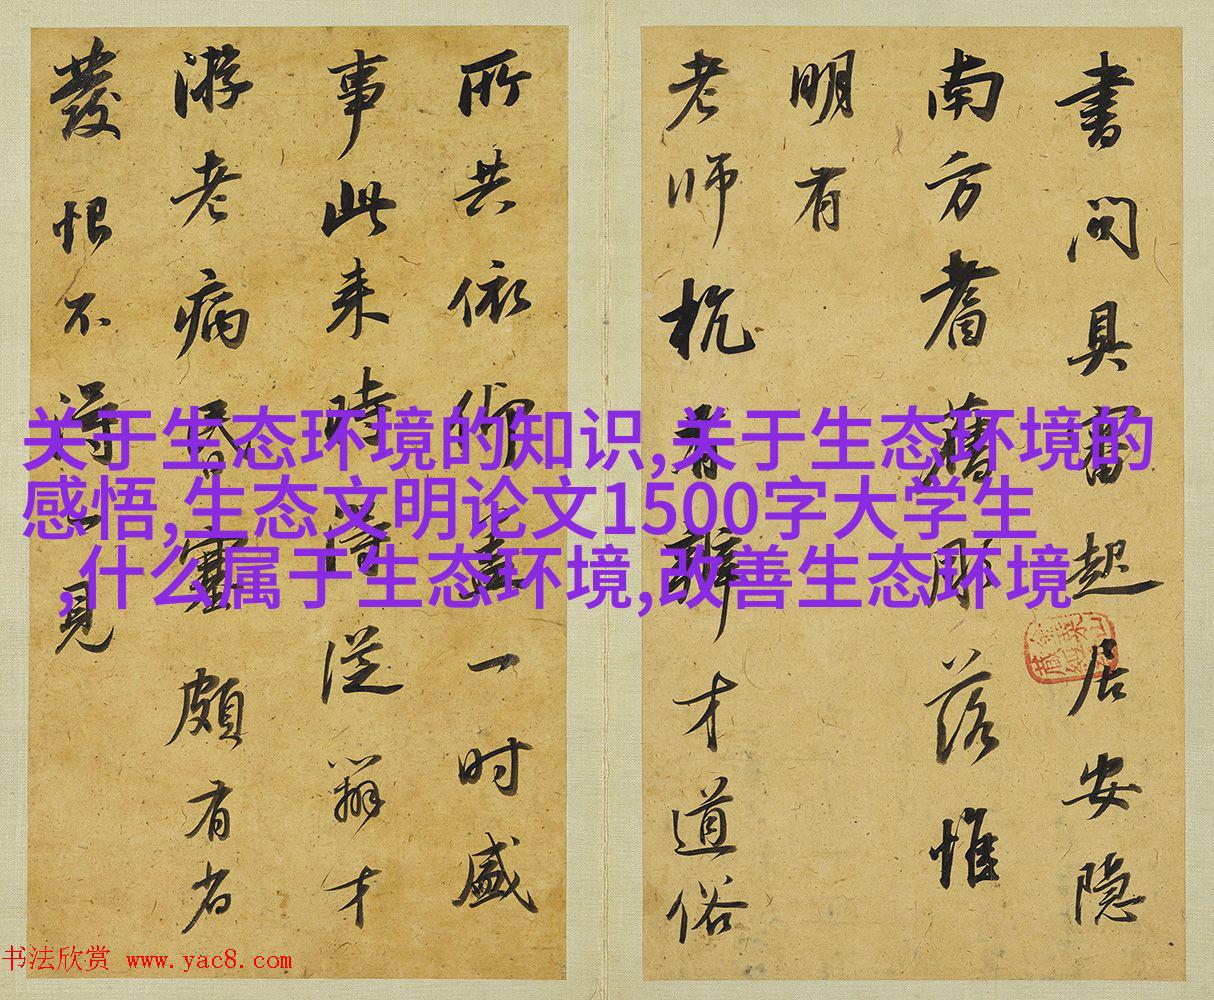 書問具審起居安隱
南方耆舊彫落惟
明有
老師杭有辯才道俗
所共依仰盡一時盛
事此来時得從辯才
游老病
頗有省
發恨不得一見
关于生态环境的知识,关于生态环境的
感悟,生态文明论文1500字大学生
,什么属于生态环境,改善生态环境
书法欣赏 www.yac8.com